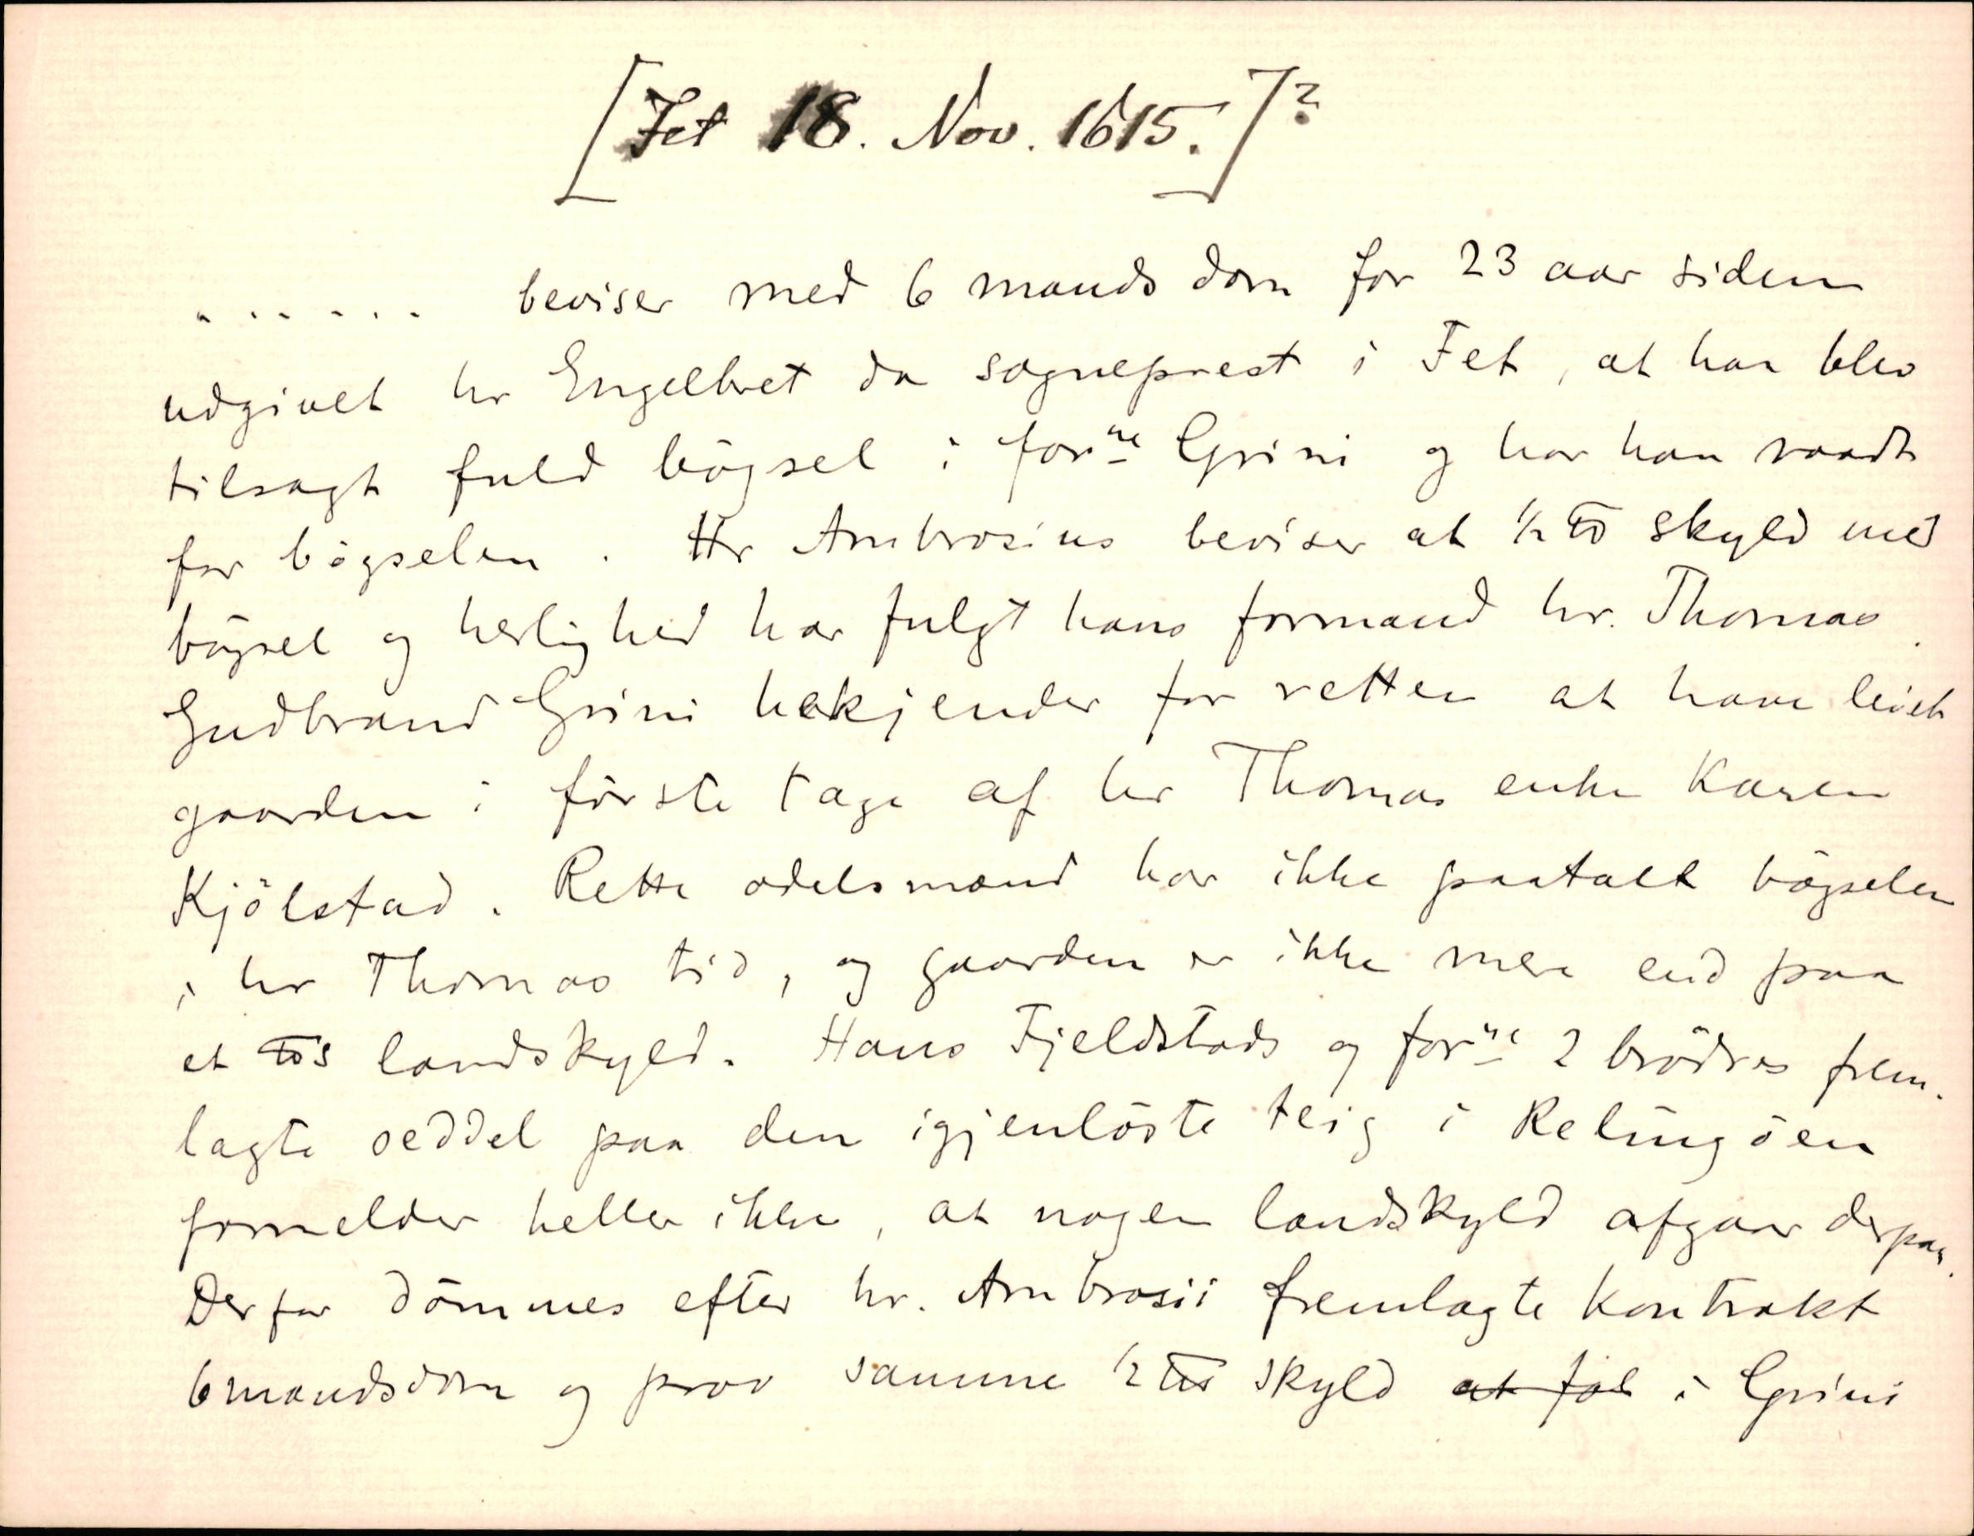 [Fet 18. Nov. 1615.]?
. . . . . . beviser med 6 mands dom for 23 aar siden
udgivet hr Engelbret da sogneprest i Fet, at han blev
tilsagt fuld bögsel i forne Grini og har han raadt
for bögselen. Hr Ambrosius beviser at ½ td skyld med
bögsel og herlighed har fulgt hans formand hr. Thomas.
Gudbrand Grini bekjender for retten at have leiet
gaarden i förste tage af hr Thomas enke Karen
Kjölstad. Rette odelsmænd har ikke paatalt bögselen
i hr Thomas tid, og gaarden er ikke mere end paa
et tds landskyld. Hans Fjeldstads og forne 2 brödres frem-
lagte seddel paa den igjenlöste teig i Relingöen
formelder heller ikke, at nogen landskyld afgaar derpaa.
Derfor dömmes efter hr. Ambrosii fremlagte kontrakt
6mandsdom og prov samme ½ tds skyld at föl i Grini